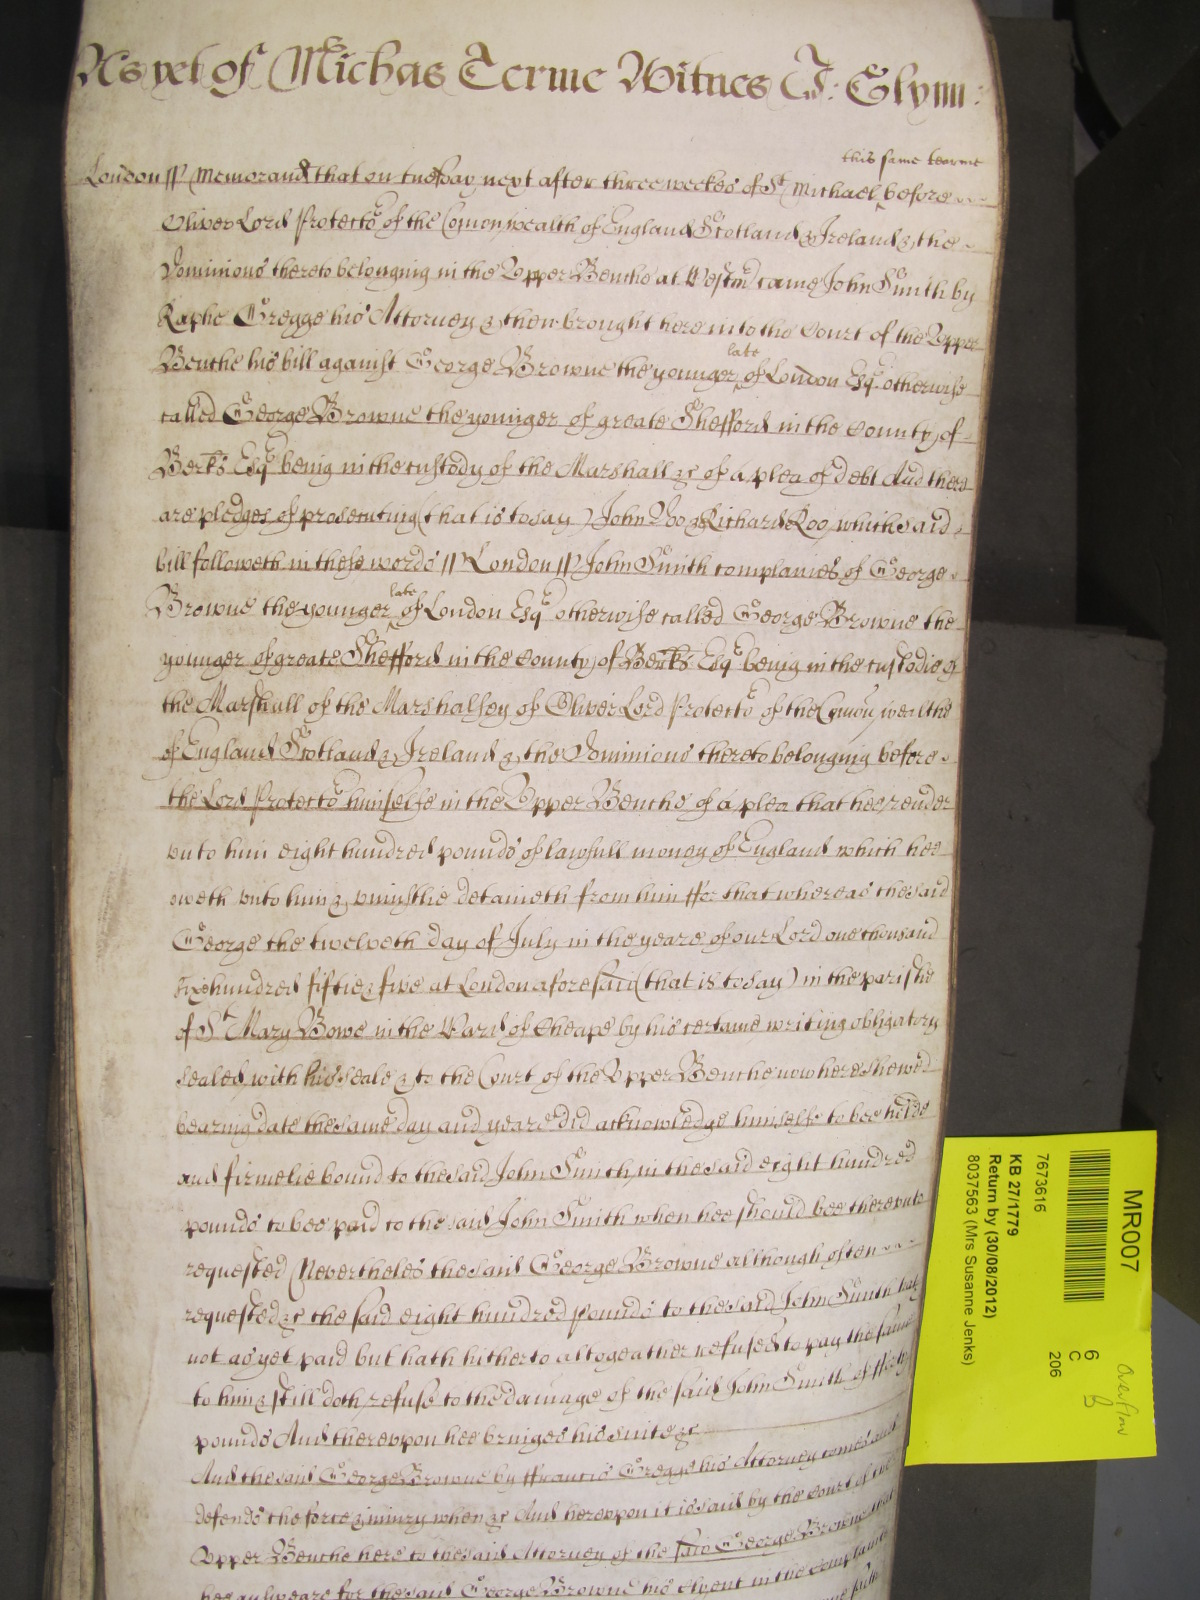 As yet of Michas Terme Witnes J: Glynn:
this same tearme
London ss Memorand that on tuesday next after three weekes of St Michael before
Oliver Lord Protector of the Comon wealth of England Scotland & Ireland & the
Dominions thereto belonging in the Upper Benche at Westm came John Smith by
Raphe Gregge his Attorney & then brought here into the Court of the Upper
late
Benche his bill against George Browne the younger of London Esqr otherwise
called George Browne the younger of greate Shefford in the County of
Berks Esqr being in the custody of the Marshall &c of a plea of debt And there
are pledges of prosecuting (that is to say) John Doo & Richard Roo which said
bill followeth in these words ss London ss John Smith complaines of George
late
Browne the younger of London Esqr otherwise called George Browne the
younger of greate Shefford in the County of Berks Esqr being in the custodie of
the Marshall of the Marshalsey of Oliver Lord Protector of the Comon wealthe
of England Scotland & Ireland & the Dominions thereto belonging before
the Lord Protector himselfe in the Upper Benche of a plea that hee render
unto him eight hundred pounds of lawfull money of England which hee
oweth unto him & uniustlie detaineth from him ffor that whereas the said
George the twelveth day of July in the yeare of our Lord one thousand
sixe hundred fiftie & five at London aforesaid (that is to say) in the parishe
of St Mary Bowe in the Ward of Cheape by his certaine writing obligatory
sealed with his seale & to the Court of the Upper Benche now here shewed
bearing date the same day and yeare did acknowledge himselfe to bee helde
and firmelie bound to the said John Smith in the said eight hundred
pounds to bee paid to the said John Smith when hee should bee thereunto
requested Neverthelesse the said George Browne although often
requested &c the said eight hundred pounds to the said John Smith hath
not as yet paid but hath hitherto altogeather refused to pay the same
to him & still doth refuse to the damage of the said John Smith of
pounds And thereuppon hee bringes his suite &c
And the said George Browne by ffrancis Gregge his Attorney comes and
defends the force & iniury when &c And hereuppon it is said by the Court of the
Upper Benche here to the said Attorney of the said George Browne that
hee answeare for the said George Browne his clyent in the complainte
MR007
7673616
KB 27/1779
Return by (30/08/2012)
8037563 (Mrs Susanne Jenks)
6
C
206